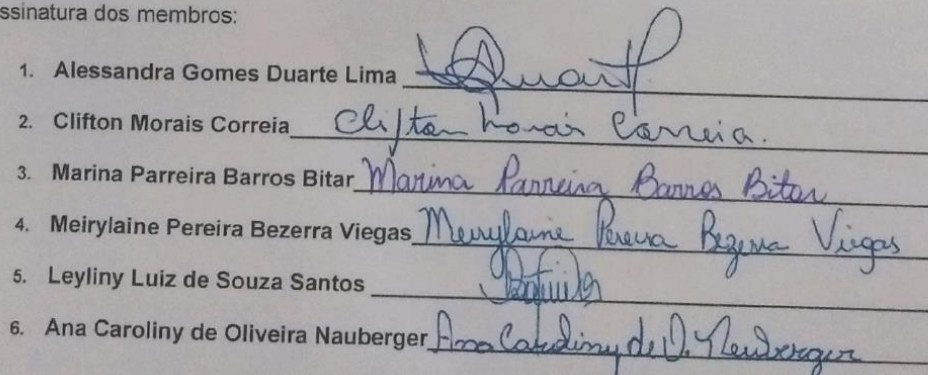 ssinatura dos membros:
1. Alessandra Gomes Duarte Lima Duarte
2. Clifton Morais Correia Clifton Morais Correia.
3. Marina Parreira Barros Bitar Marina Parreira Barros Bitar
4. Meirylaine Pereira Bezerra Viegas Meirylaine Pereira Bezerra Viegas
5. Leyliny Luiz de Souza Santos
6. Ana Caroliny de Oliveira Nauberger Ana Caroliny de O. Neuberger